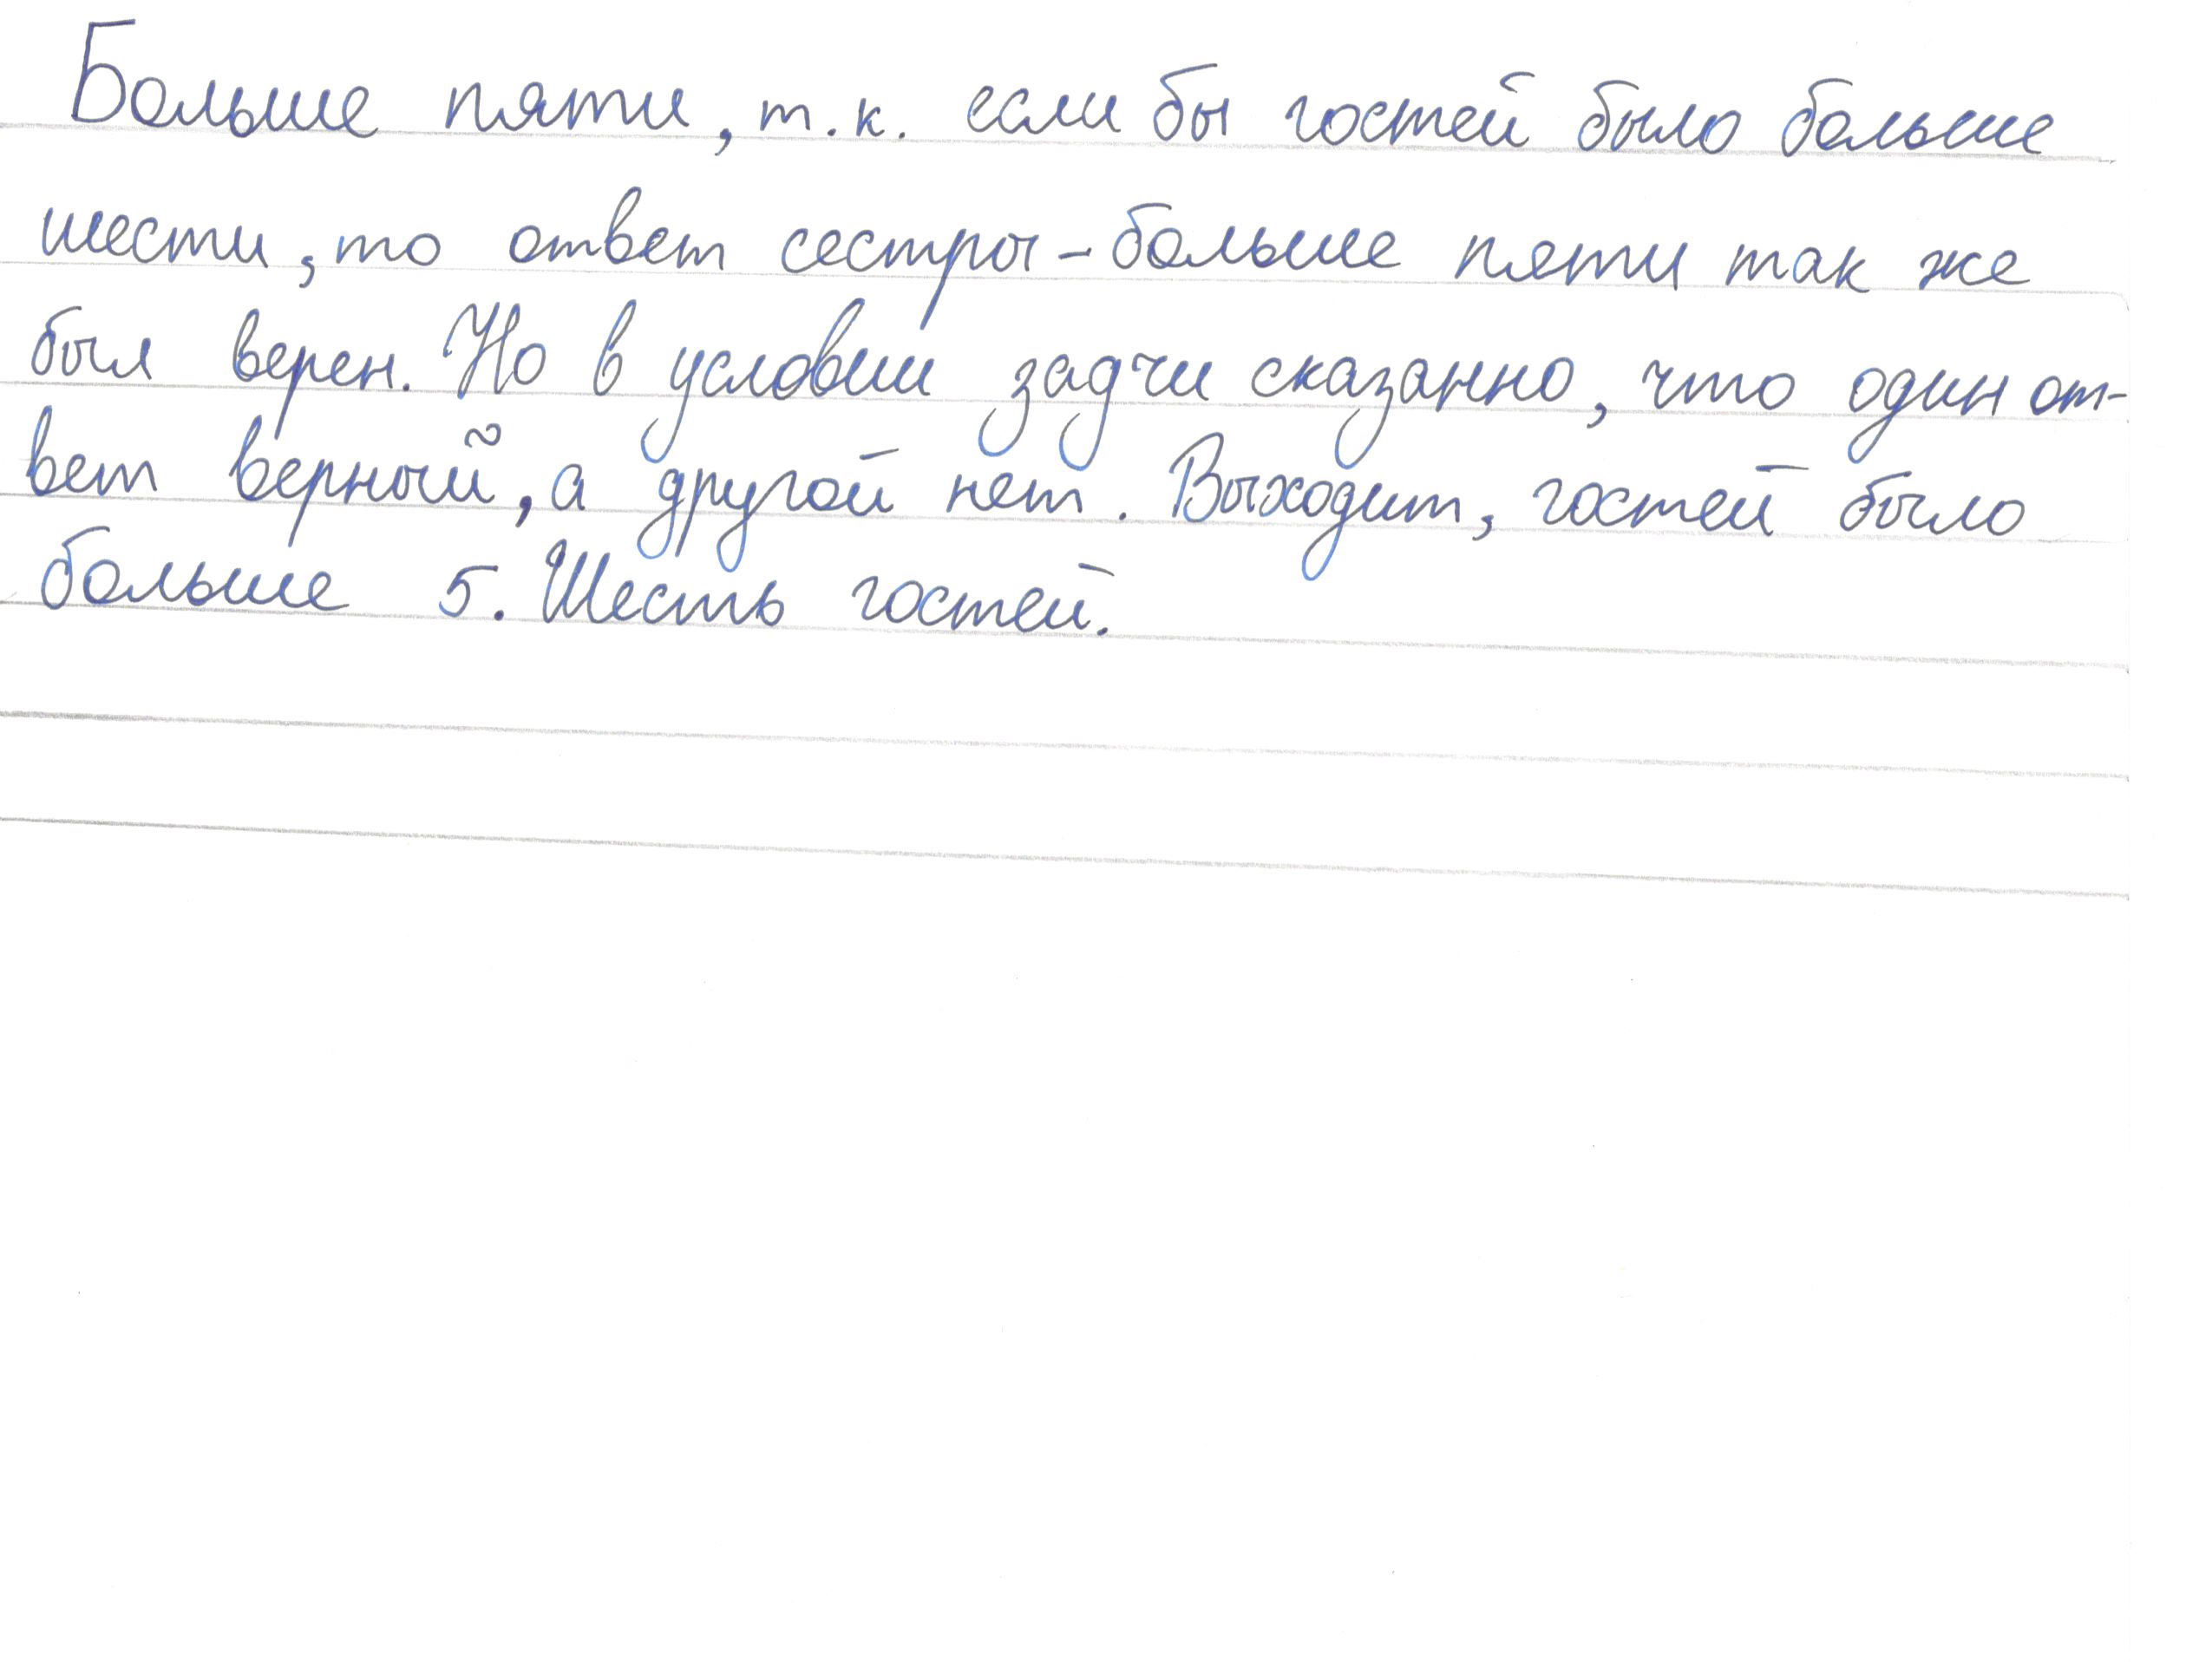 Больше пяти, т.к. если бы гостей было больше
шести, то ответ сестры - больше пяти так же
был верен. Но в условии задчи сказанно, что один от-
вет верный, а другой нет. Выходит, гостей было
больше 5. Шесть гостей.